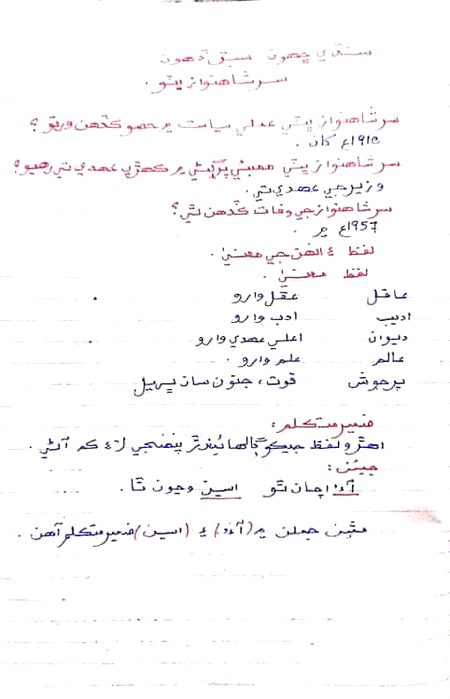 سنڌي ڇهون سبق ڏهون
سر شاهنواز ڀٽو .
سر شاهنواز ڀٽي عملي سياست ۾ حصو ڪڏهن ورتو ؟
کان .
سر شاهنواز ڀٽي ممبئي پرڳڻي ۾ ڪهڙي عهدي تي رهيو ؟
وزير جي عهدي تي .
سر شاهنواز جي وفات ڪڏهن ٿي ؟
1957ع ۾ .
لفظ ۽ انهن جي معنيٰ .
لفظ معنيٰ .
عاقل عقل وارو
اديب ادب وارو
ديوان اعليٰ عهدي وارو
عالم علم وارو .
پرجوش قوت ، جنون سان ڀريل
ضمير متڪلم :
اهڙو لفظ جيڪو ڳالهائيندڙ پنهنجي لاءِ ڪم آڻي .
جيئن :
آءٌ اچان ٿو اسين وڃون ٿا .
مٿين جملن ۾ (آءٌ) ۽ (اسين) ضمير متڪلم آهن .